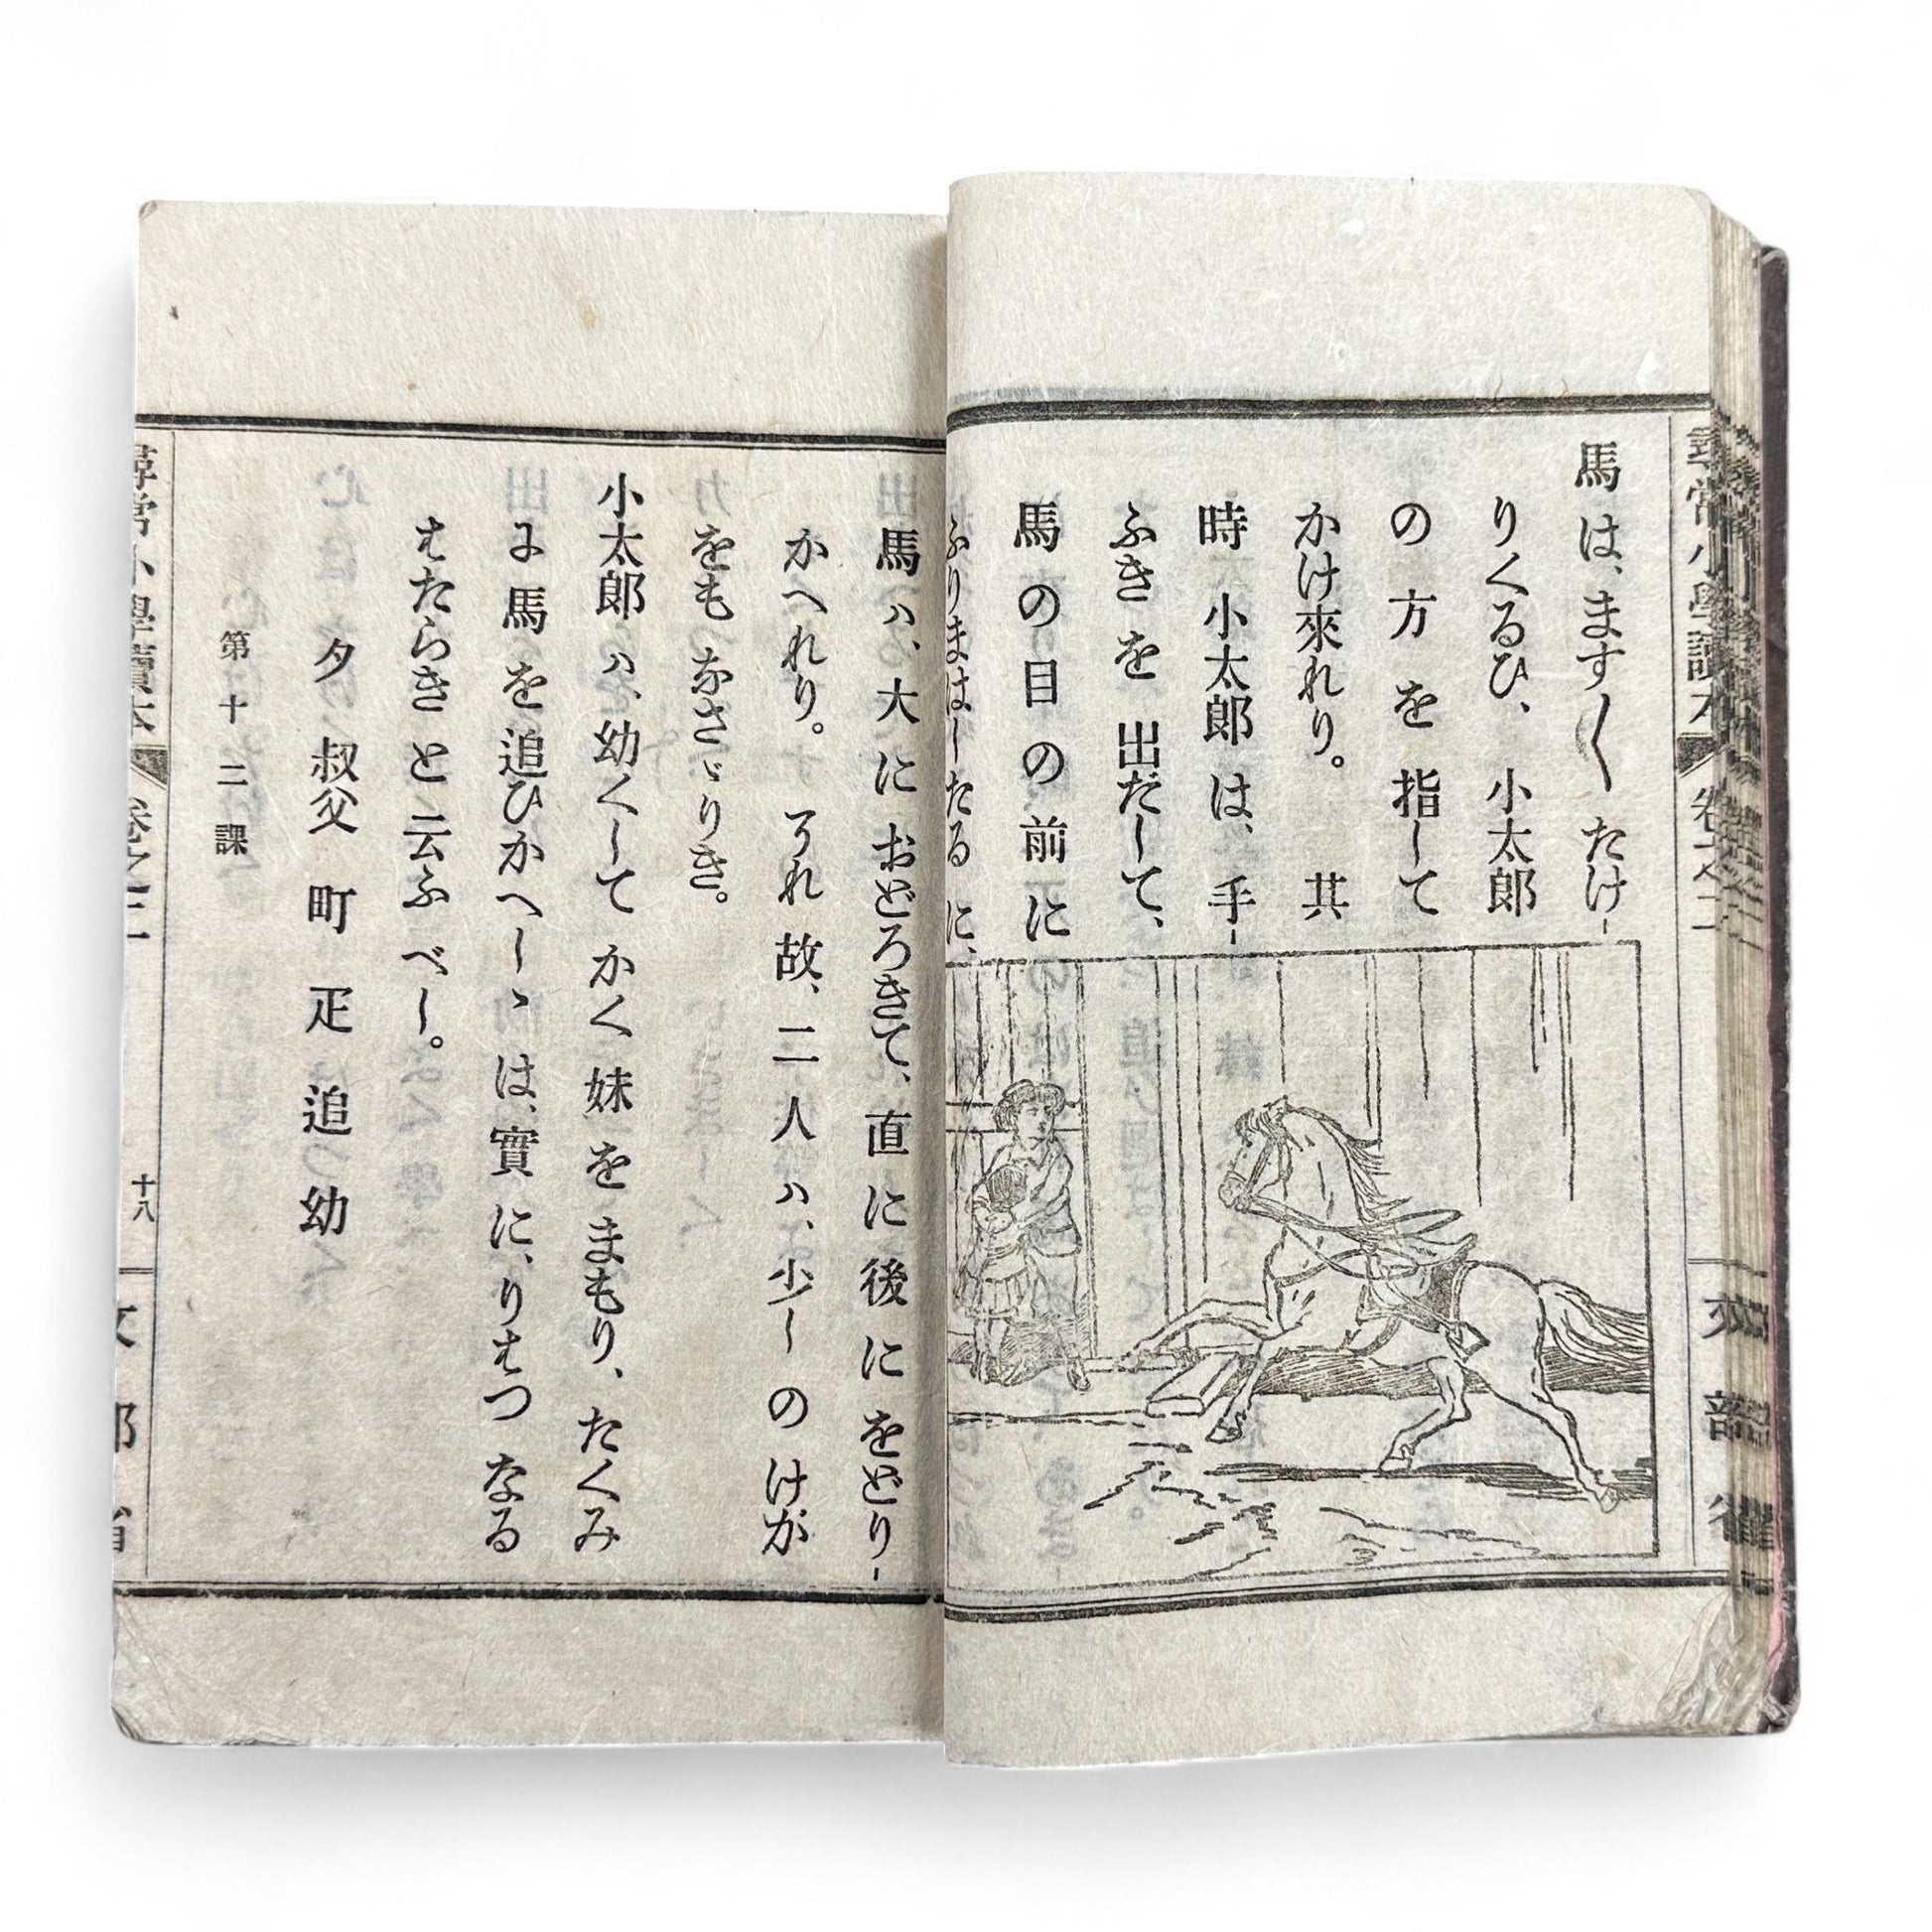 馬は、ますく たけ-
りくるひ、 小太郎
の方を指して
かけ來れり。 其
時 小太郎は、手-
ふきを出だして、
馬の目の前に
ふりまはしたるに、
馬ハ、大におどろきて、直に後にをどり-
かへれり。それ故、二人ハ、少しのけが
をもなさゞりき。
小太郎ハ、幼くしてかく妹をまもり、たくみ
に馬を追ひかへしゝは、實に、りはつなる
はたらきと云ふべし。
夕 叔父 町 疋 追 幼
第十二課
尋常小學讀本 卷之二 十八